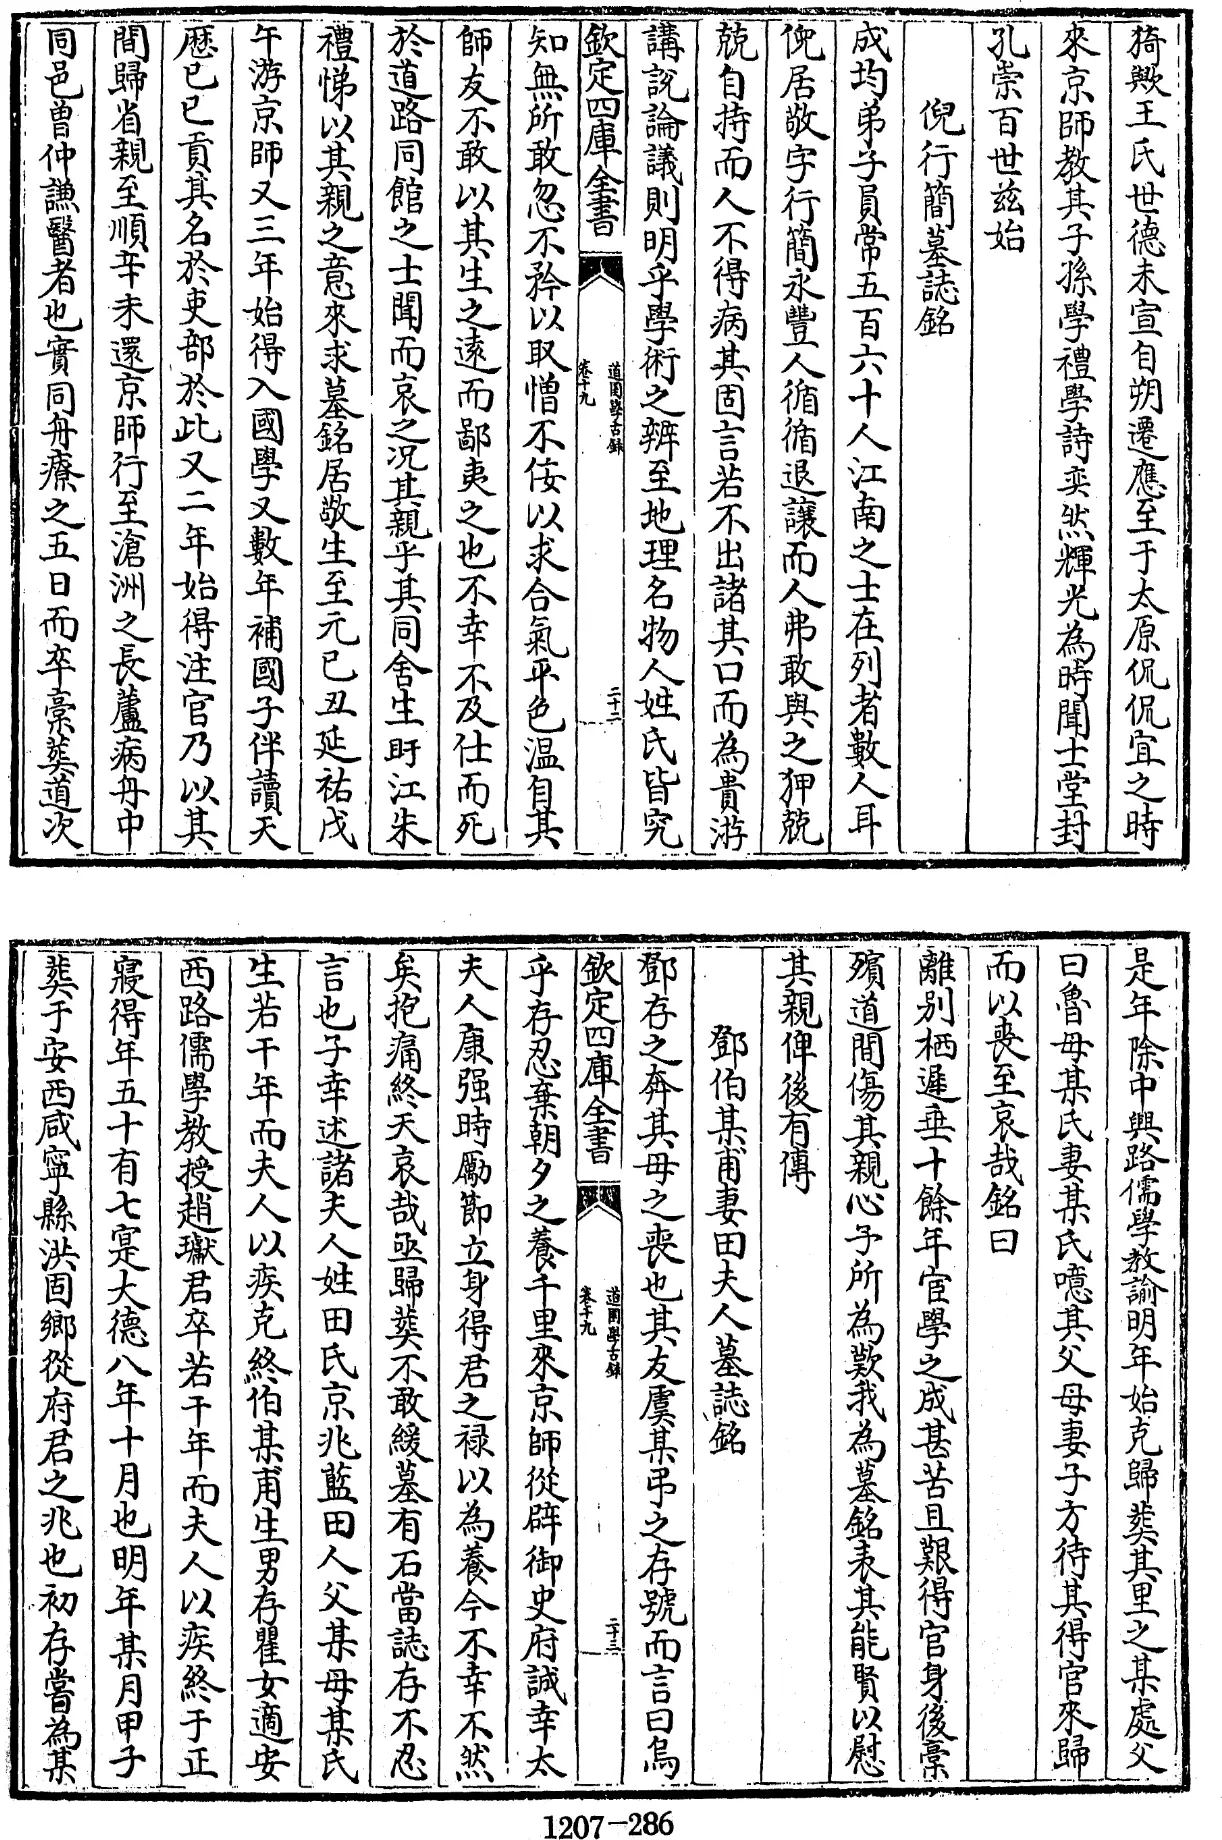 猗歟王氏世德未宣自朔遷應至于太原侃侃宜之時
來京師教其子孫學禮學詩奕然輝光為時聞士堂封
孔崇百世兹始
倪行簡墓誌銘
成均弟子員常五百六十人江南之士在列者數人耳
倪居敬字行簡永豐人循循退讓而人弗敢與之狎兢
兢自持而人不得病其固言若不出諸其口而為貴游
講説論議則明乎學術之辨至地理名物人姓氏皆究
欽定四庫全書
道園學古録
卷十九
二十二
知無所敢忽不矜以取憎不佞以求合氣平色温自其
師友不敢以其生之遠而鄙夷之也不幸不及仕而死
於道路同館之士聞而哀之况其親乎其同舍生盱江朱
禮悌以其親之意來求墓銘居敬生至元已丑延祐戊
午游京師又三年始得入國學又數年補國子伴讀天
厯已巳貢其名於吏部於此又二年始得注官乃以其
間歸省親至順辛未還京師行至滄洲之長蘆病舟中
同邑曾仲謙醫者也實同舟療之五日而卒槀葬道次
是年除中興路儒學教諭明年始克歸葬其里之某處父
曰魯母某氏妻某氏噫其父母妻子方待其得官來歸
而以喪至哀哉銘曰
離别栖遲垂十餘年宦學之成甚苦且艱得官身後槀
殯道間傷其親心予所為歎我為墓銘表其能賢以慰
其親俾後有傳
鄧伯某甫妻田夫人墓誌銘
鄧存之奔其母之喪也其友虞某弔之存號而言曰烏
欽定四庫全書
道園學古録
卷十九
二十三
乎存忍棄朝夕之養千里來京師從辟御史府誠幸太
夫人康强時勵節立身得君之禄以為養今不幸不然
矣抱痛終天哀哉亟歸葬不敢緩墓有石當誌存不忍
言也子幸述諸夫人姓田氏京兆藍田人父某母某氏
生若干年而夫人以疾克終伯某甫生男存瞿女適安
西路儒學教授趙瓛君卒若干年而夫人以疾終于正
寢得年五十有七寔大德八年十月也明年某月甲子
葬于安西咸寧縣洪固鄉從府君之兆也初存嘗為某
1207-286